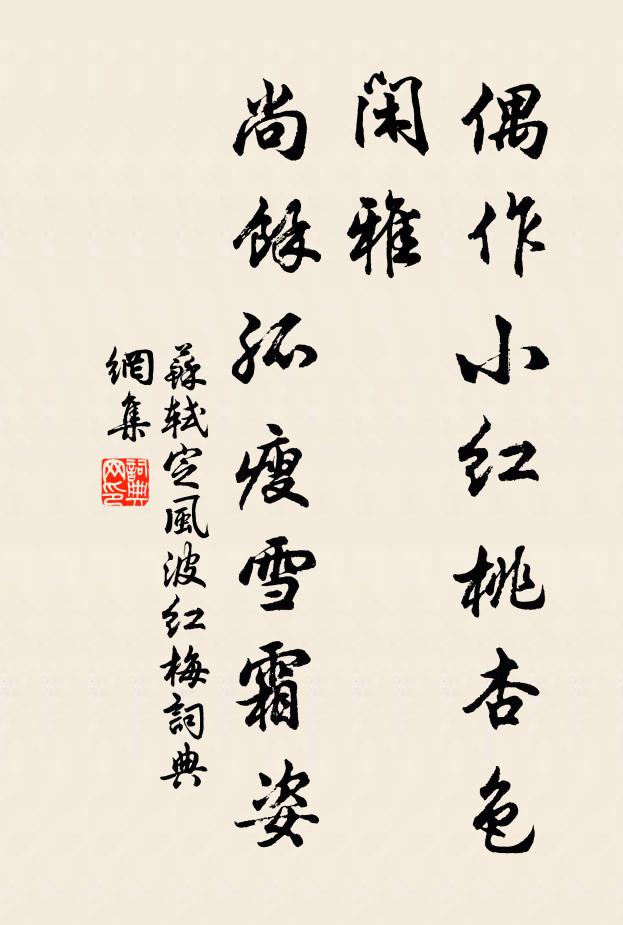 偶作小红桃杏色
闲雅
尚餘孤瘦雪霜姿
蘇軾定風波红梅詞典
網集
詞典网印